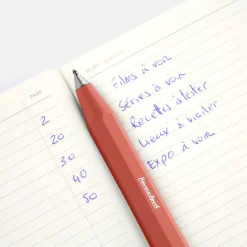 PAGE
2 Films à voir
20 Séries à voir
30 Recettes à tester
40 Lieux à visiter
50 Expo à voir